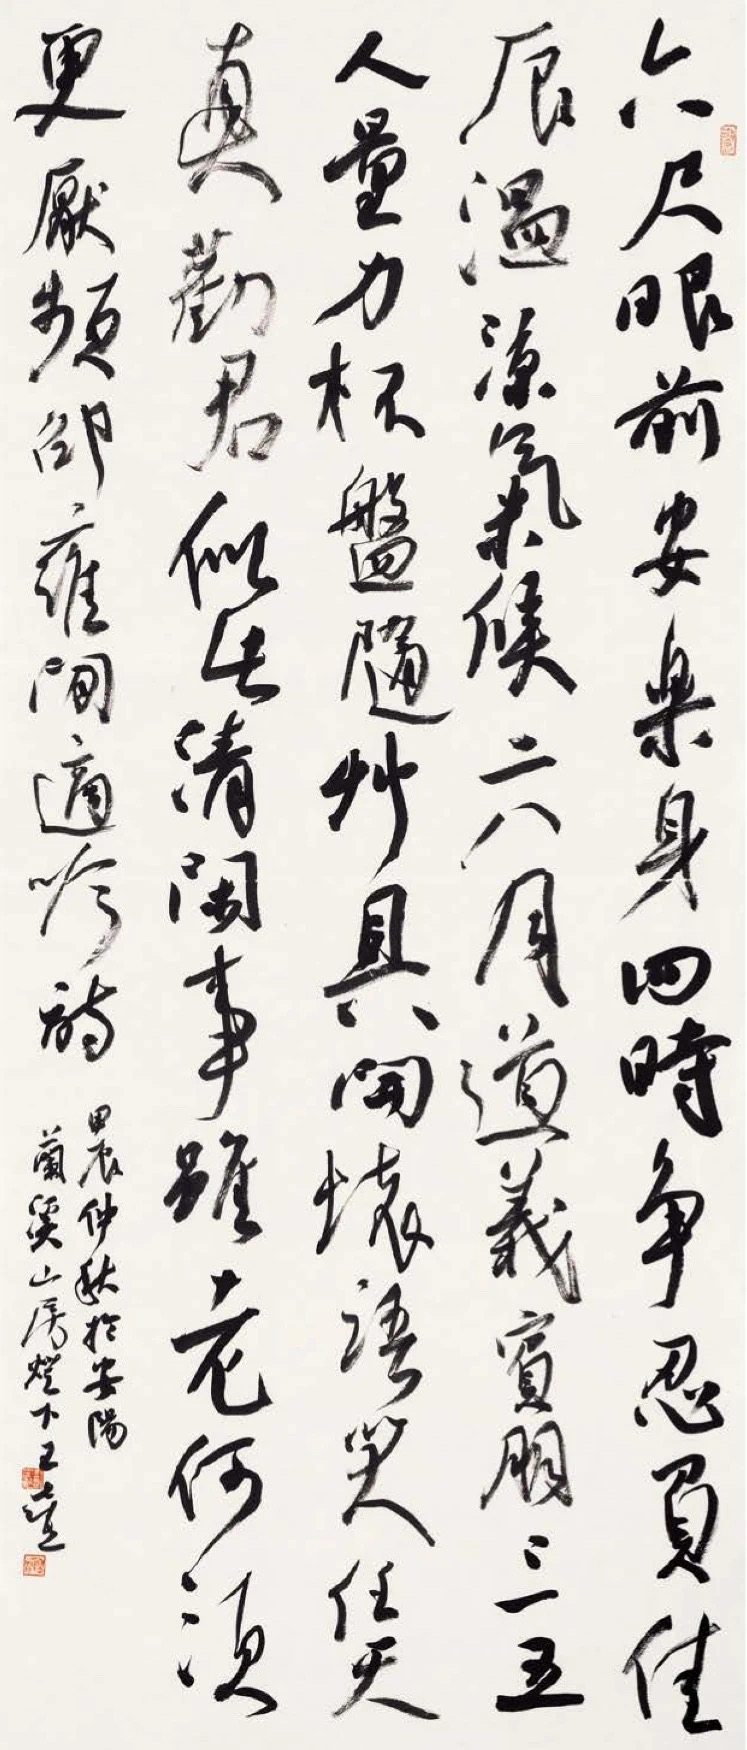 六尺眼前安樂身四時争忍負佳
辰溫涼氣候二八月道義賓朋三五
人量力杯盤隨艸具開懷語笑任天
真勸君似此清閑事雖老何須
更厭頻邵雍閒適吟詩
甲辰仲秋於安陽
蘭溪山房燈下王